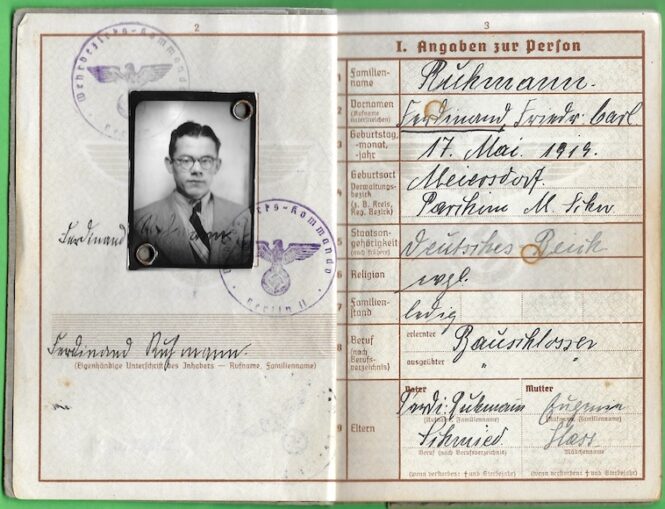 2
Wehrbezirks-Kommando
Berlin II
Ferdinand
Ferdinand Ruhmann.
(Eigenhändige Unterschrift des Inhabers — Rufname, Familienname)
3
I. Angaben zur Person
1 Familien-
name
Ruhmann.
2 Vornamen
(Rufname
unterstreichen)
Ferdinand, Friedr. Carl
3 Geburtstag,
-monat,
-jahr
17. Mai. 1919.
4 Geburtsort
Verwaltungs-
bezirk
(z. B. Kreis,
Reg. Bezirk)
Meiersdorf.
Parchim M. Schw
5 Staatsan-
gehörigkeit
(auch frühere)
Deutsches Reich
6 Religion
evgl.
7 Familien-
stand
ledig
8 Beruf
(nach
Berufs-
verzeichnis)
erlernter
Bauschlosser
ausgeübter
" "
9 Eltern
Vater
Ferdi: Ruhmann
(Rufname, Familienname)
Schmied.
Beruf (nach Berufsverzeichnis)
(wenn verstorben: † und Sterbejahr)
Mutter
(Rufname, Familienname)
Mädchenname
(wenn verstorben: † und Sterbejahr)